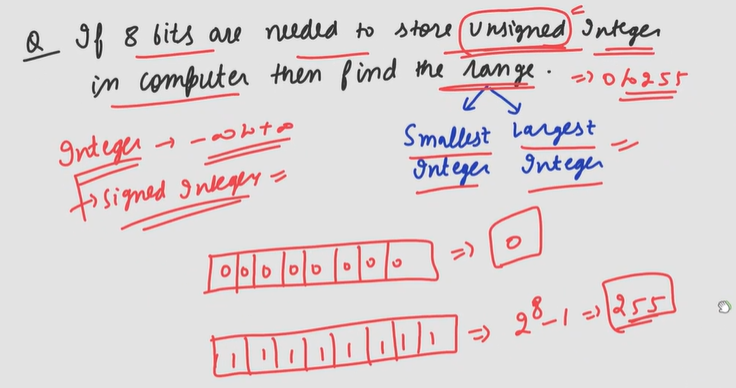 Q If 8 bits are needed to store Unsigned Integer
in computer then find the range. => 0 to 255
Integer → -∞ to +∞
Smallest Largest
Integer Integer =
→ Signed Integer =
0 0 0 0 0 0 0 0 => 0
1 1 1 1 1 1 1 1 => 2⁸-1 => 255